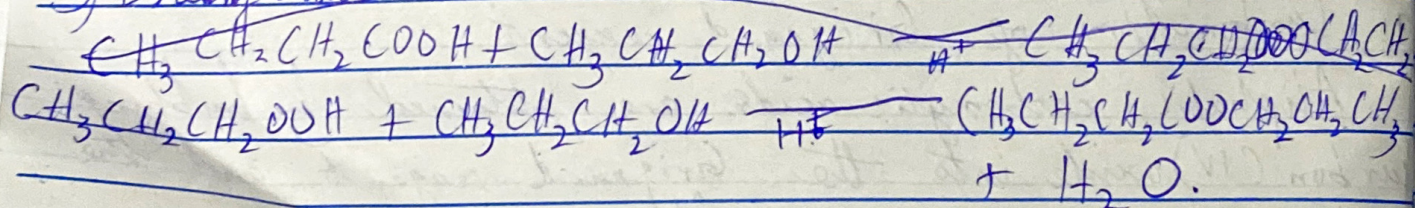 CH₃CH₂CH₂COOH + CH₃CH₂CH₂OH H⁺ CH₃CH₂
CH₃CH₂CH₂OOH + CH₃CH₂CH₂OH H⁺ CH₃CH₂CH₂COOCH₂CH₂CH₃
+ H₂O.